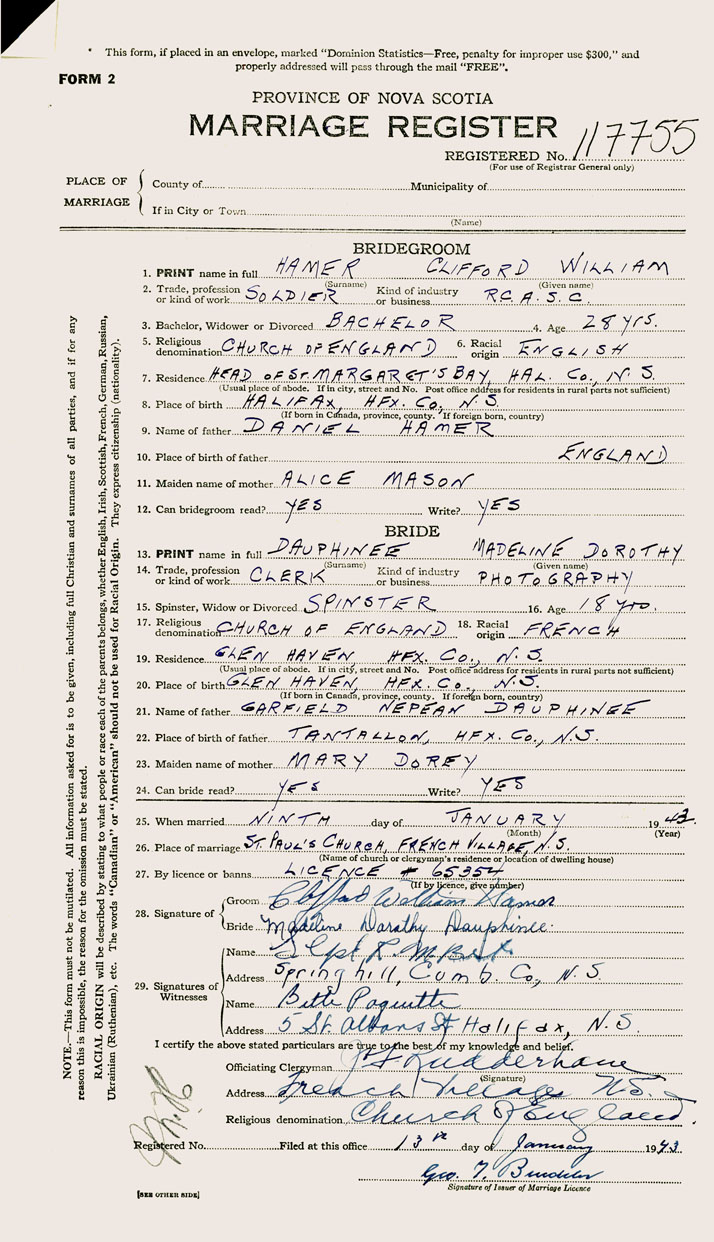 * This form, if placed in an envelope, marked "Dominion Statistics—Free, penalty for improper use $300," and
properly addressed will pass through the mail "FREE".
FORM 2
PROVINCE OF NOVA SCOTIA
MARRIAGE REGISTER
REGISTERED No. 117755
(For use of Registrar General only)
PLACE OF MARRIAGE
County of Municipality of
If in City or Town
(Name)
BRIDEGROOM
1. PRINT name in full HAMER CLIFFORD WILLIAM
(Surname) (Given name)
2. Trade, profession or kind of work SOLDIER Kind of industry or business R.C.A.S.C.
3. Bachelor, Widower or Divorced BACHELOR 4. Age 28 yrs.
5. Religious denomination CHURCH OF ENGLAND 6. Racial origin ENGLISH
7. Residence HEAD OF ST. MARGARET'S BAY, HAL. Co., N.S.
(Usual place of abode. If in city, street and No. Post office address for residents in rural parts not sufficient)
8. Place of birth HALIFAX, HFX. Co., N.S.
(If born in Canada, province, county. If foreign born, country)
9. Name of father DANIEL HAMER
10. Place of birth of father ENGLAND
11. Maiden name of mother ALICE MASON
12. Can bridegroom read? YES Write? YES
BRIDE
13. PRINT name in full DAUPHINEE MADELINE DOROTHY
(Surname) (Given name)
14. Trade, profession or kind of work CLERK Kind of industry or business PHOTOGRAPHY
15. Spinster, Widow or Divorced SPINSTER 16. Age 18 yrs.
17. Religious denomination CHURCH OF ENGLAND 18. Racial origin FRENCH
19. Residence GLEN HAVEN, HFX. Co., N.S.
(Usual place of abode. If in city, street and No. Post office address for residents in rural parts not sufficient)
20. Place of birth GLEN HAVEN, HFX. Co., N.S.
(If born in Canada, province, county. If foreign born, country)
21. Name of father GARFIELD NEPEAN DAUPHINEE
22. Place of birth of father TANTALLON, HFX. Co., N.S.
23. Maiden name of mother MARY DOREY
24. Can bride read? YES Write? YES
25. When married NINTH day of JANUARY 1943.
(Month) (Year)
26. Place of marriage ST. PAUL'S CHURCH, FRENCH VILLAGE, N.S.
(Name of church or clergyman's residence or location of dwelling house)
27. By licence or banns LICENCE # 65354
(If by licence, give number)
28. Signature of
Groom Clifford William Hamer
Bride Madeline Dorothy Dauphinee
29. Signatures of Witnesses
Name
Address Springhill, Cumb. Co., N.S.
Name Bette Paquette
Address 5 St Albans St Halifax, N.S.
I certify the above stated particulars are true to the best of my knowledge and belief.
Officiating Clergyman
(Signature)
Address French Village N.S.
Religious denomination Church of England.
Registered No. Filed at this office 13th day of January 1943
Geo.
Signature of Issuer of Marriage Licence
[SEE OTHER SIDE]
NOTE.—This form must not be mutilated. All information asked for is to be given, including full Christian and surnames of all parties, and if for any
reason this is impossible, the reason for the omission must be stated.
RACIAL ORIGIN will be described by stating to what people or race each of the parents belongs, whether English, Irish, Scottish, French, German, Russian,
Ukrainian (Ruthenian), etc. The words "Canadian" or "American" should not be used for Racial Origin. They express citizenship (nationality).